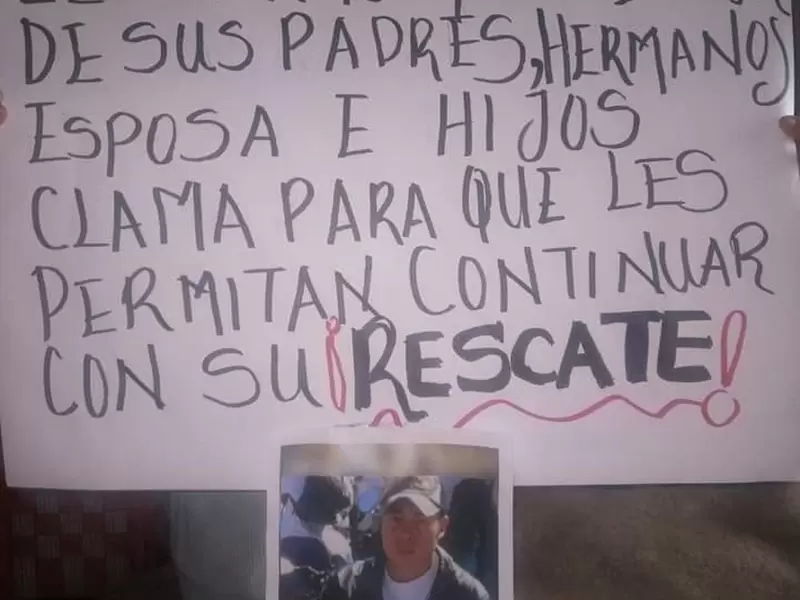 DE SUS PADRES, HERMANOS
ESPOSA E HIJOS
CLAMA PARA QUE LES
PERMITAN CONTINUAR
CON SU ¡RESCATE!